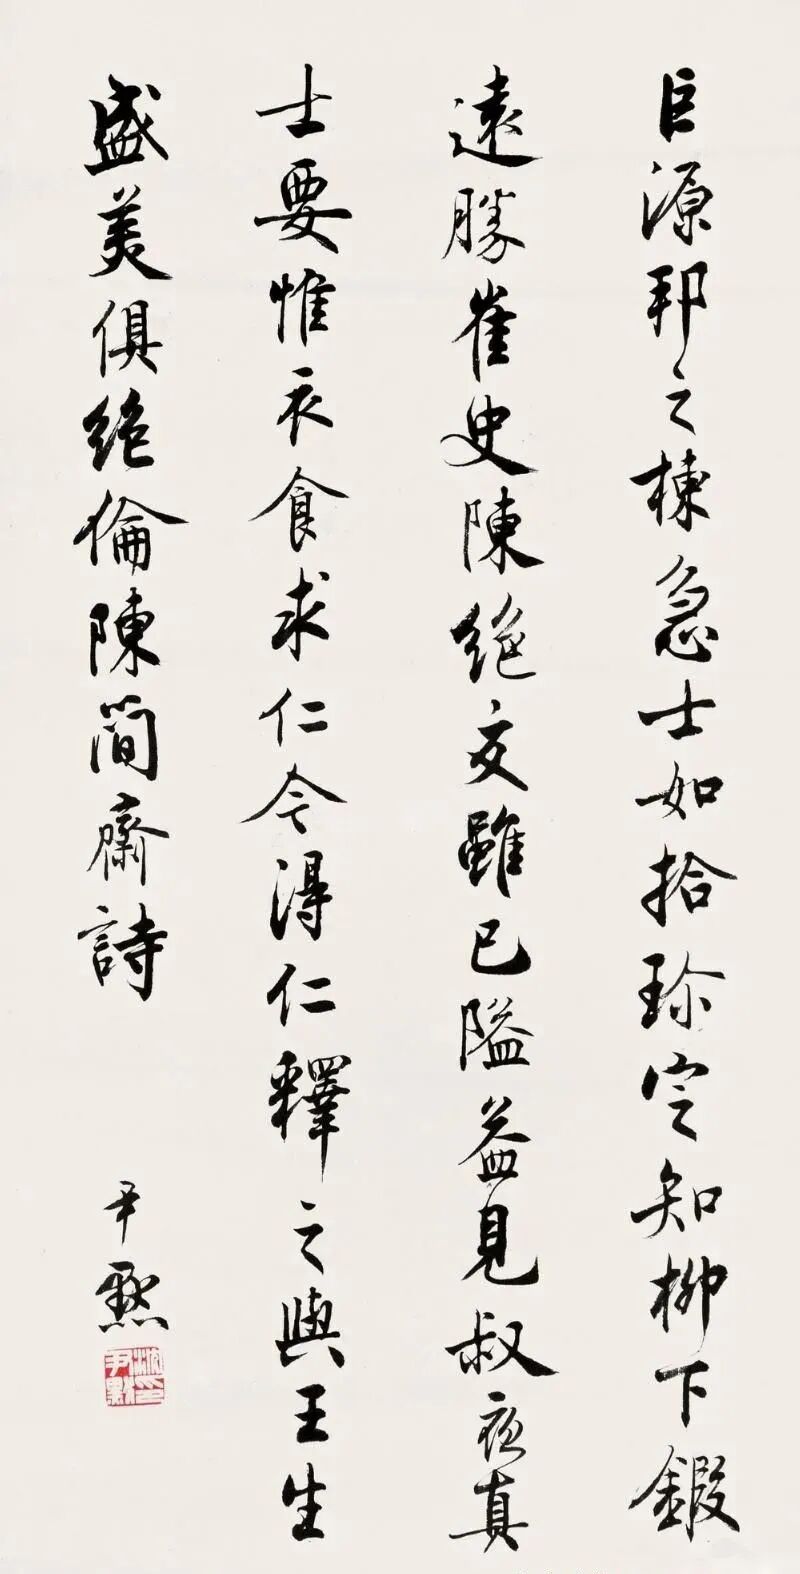 巨源邦之棟急士如拾珍定知柳下鍛
遠勝崔史陳絕交雖已隘益見叔夜真
士要惟衣食求仁今得仁釋之與王生
盛美俱絕倫陳簡齋詩
尹默
沈尹默印